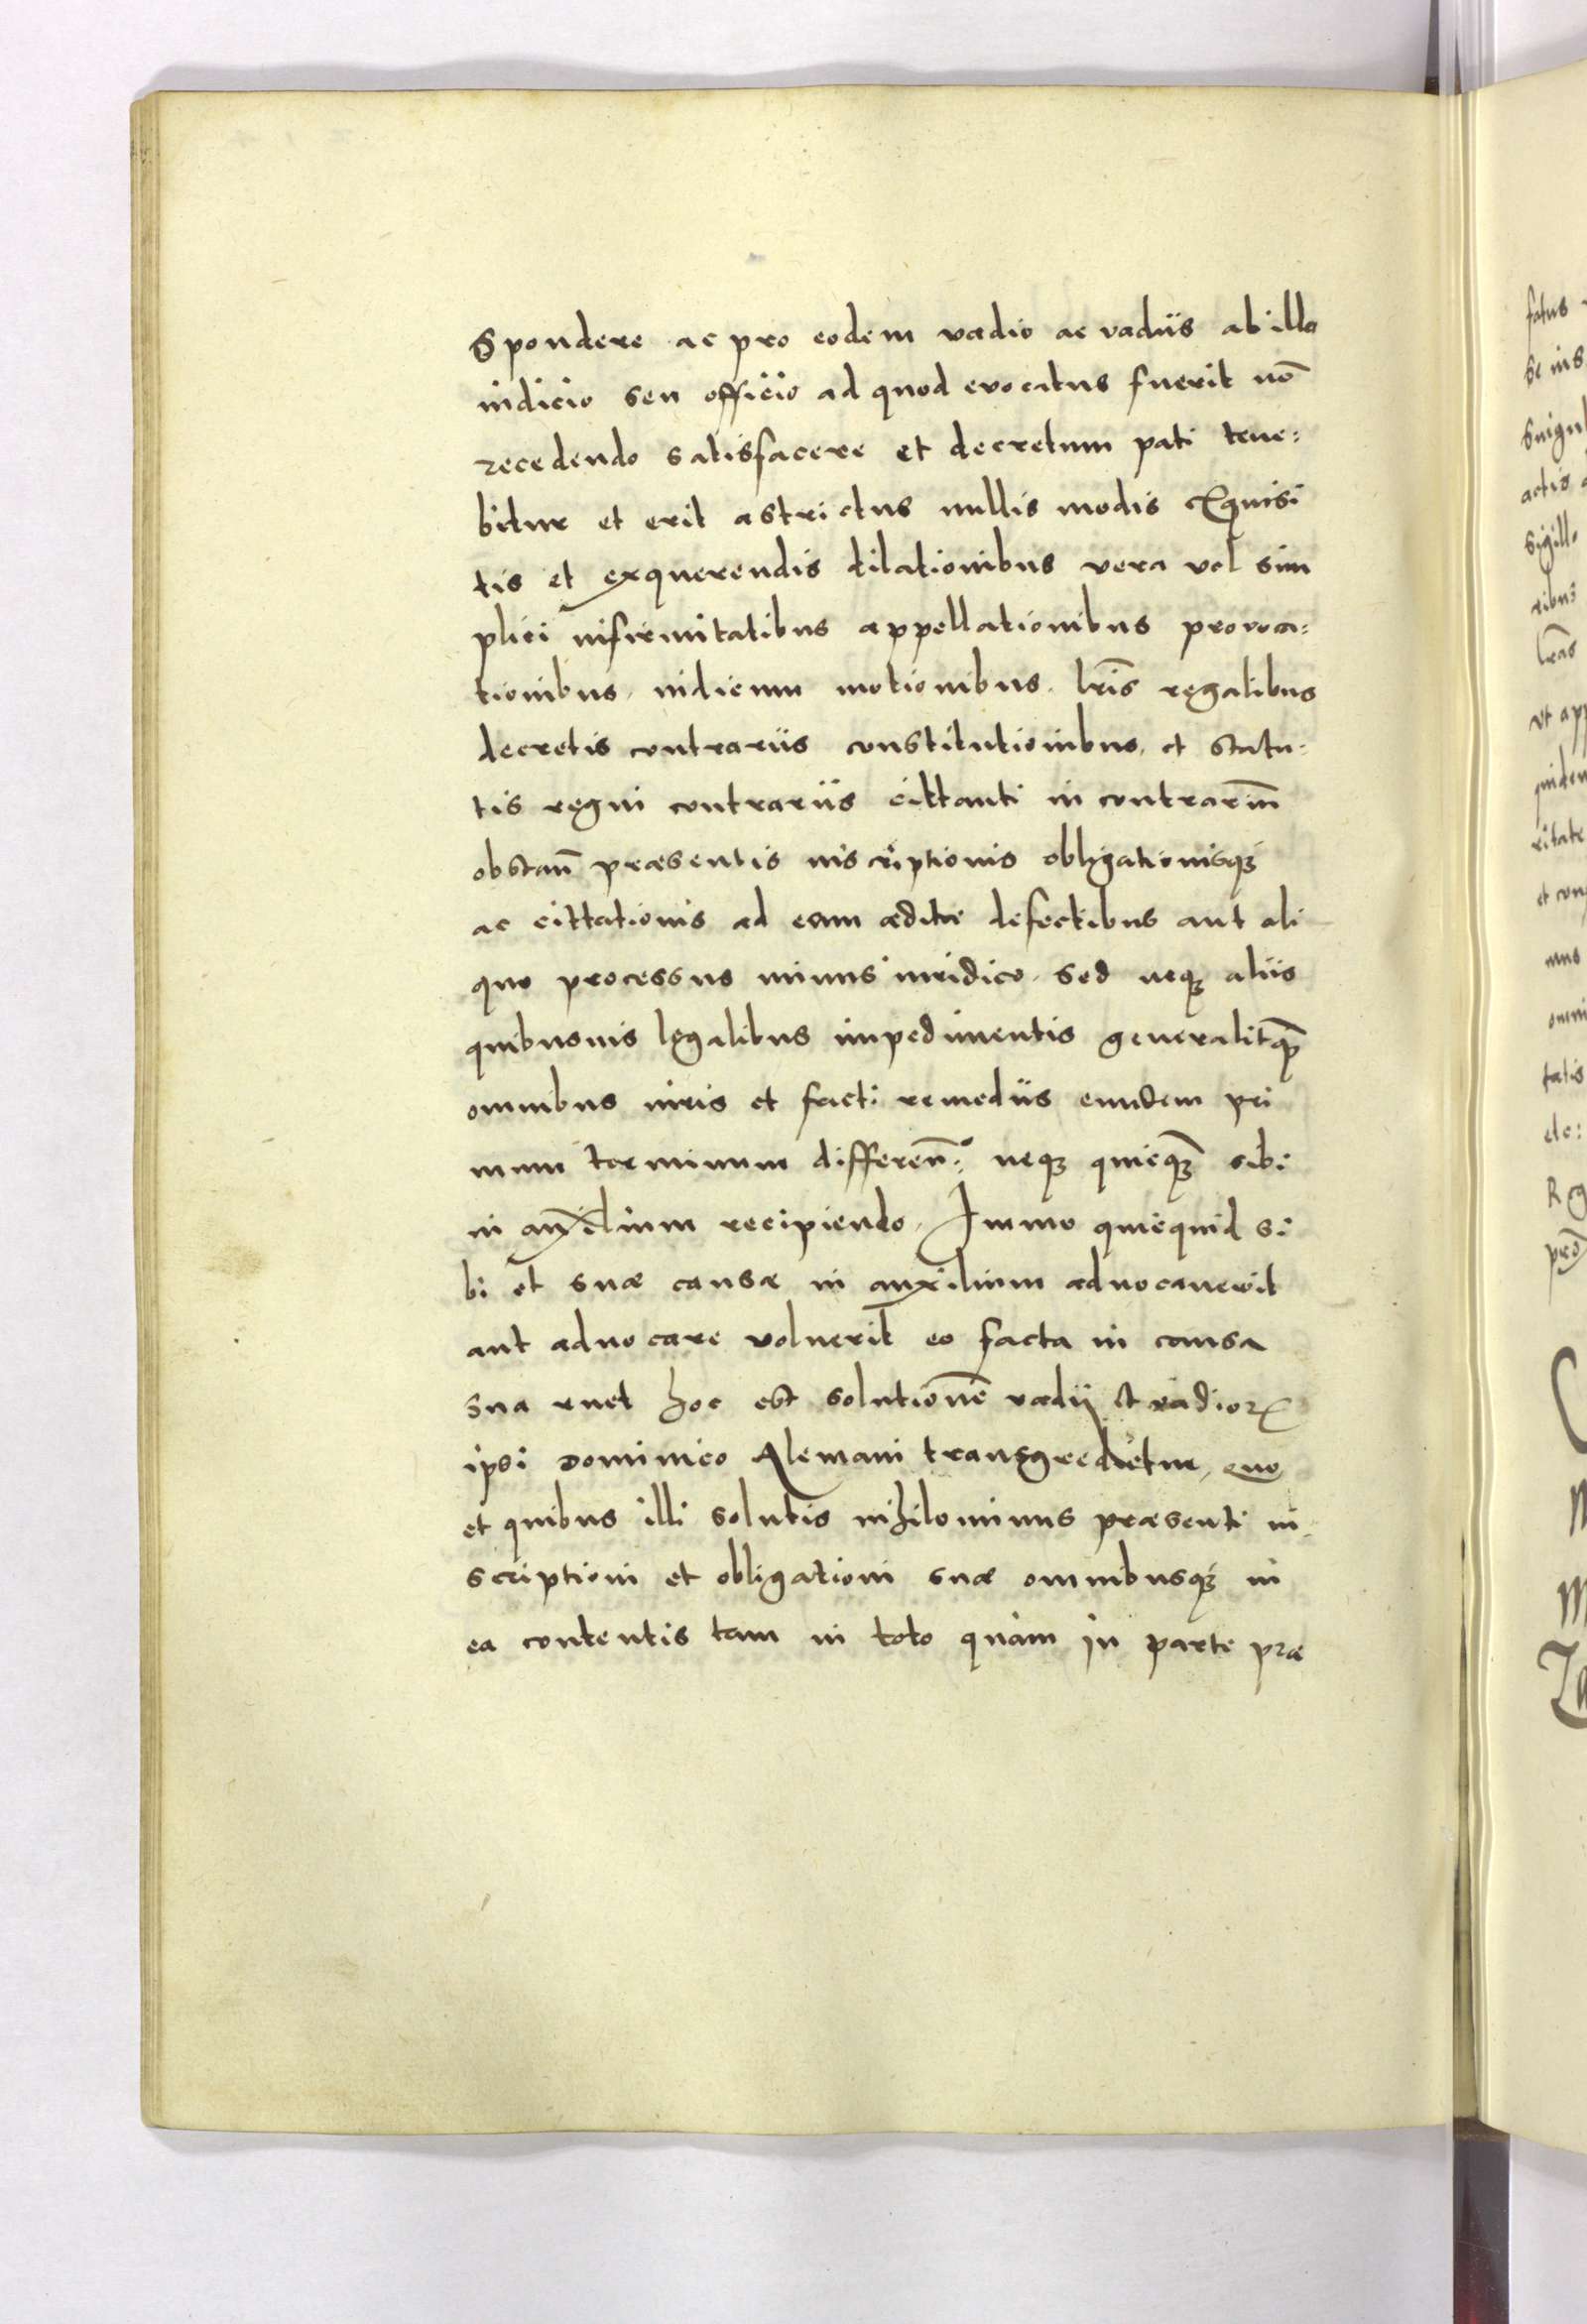 Spondere ac pro eodem vadio ac vadiis ab illo
iudicio seu officio ad quod evocatus fuerit nō
recedendo satisfacere et decretum pati tene:
bitur et erit astrictus nullis modis exquisi
tis et exquerendis dilationibus vera vel sim
plici infirmitatibus appellationibus provoca:
tionibus, iudicum motionibus. lr̄is regalibus
decretis contrariis constitutionibus, et statu:
tis regni contrariis cittanti in contrariū
obstan̄ præsentis inscriptionis obligationisqꝫ
ac cittationis ad eam æditæ defectibus aut ali
quo processus minus iuridico. sed neqꝫ aliis
quibusuis legalibus impedimentis generalitqꝫ
omnibus iuris et facti remediis eundem pri
mum terminum differen̄: neqꝫ quicqꝫ̄ sibi
in auxilium recipiendo. Immo quicquid si
bi et suæ causæ in auxilium aduocauerit
aut aduocare voluerit eo facta in causa
sua ruet hoc est solutionē vadii et vadioꝝ
ipsi Dominico Alemani transgredietur, quo
et quibus illi solutis nihilominus præsenti in
scriptioni et obligationi suæ omnibusqꝫ in
ea contentis tam in toto quàm in parte præ